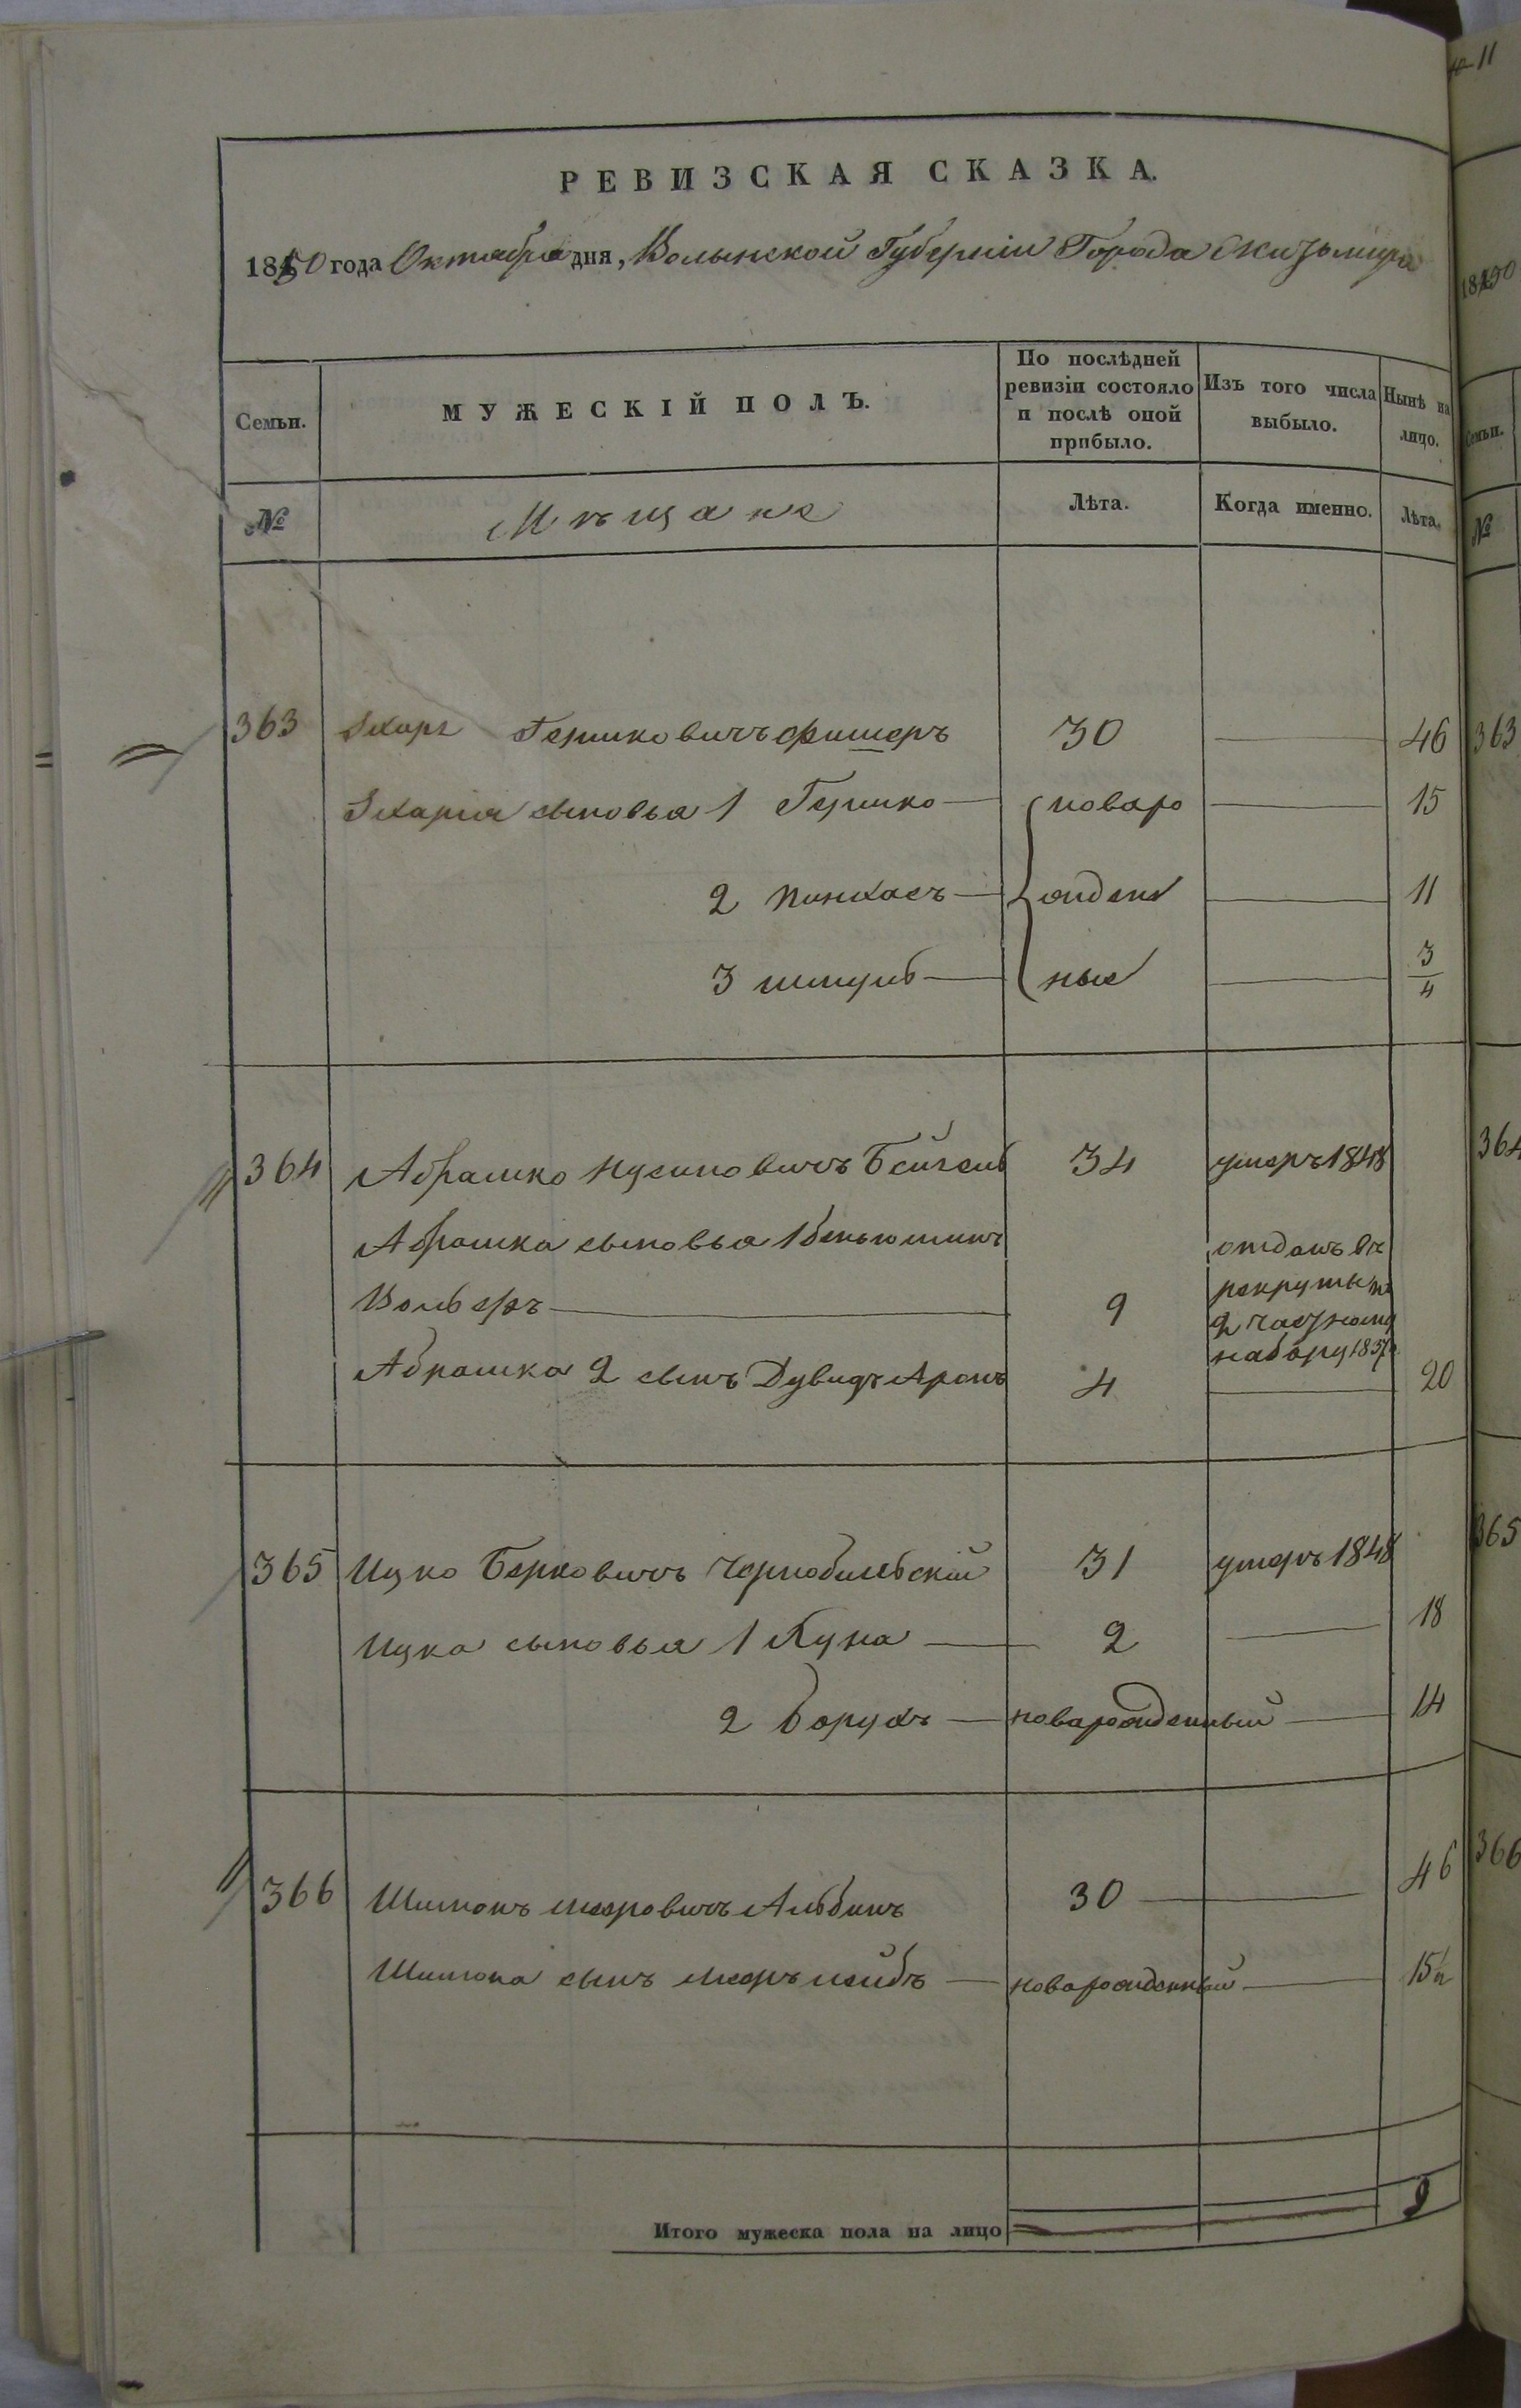 РЕВИЗСКАЯ СКАЗКА.
1850 года Октября дня, Волынской Губерніи Города
Семьи. МУЖЕСКІЙ ПОЛЪ. По послѣдней ревизіи состояло и послѣ оной прибыло. Изъ того числа выбыло. Нынѣ на лицо.
№ Мѣщане Лѣта. Когда именно. Лѣта.
363 Гершковичъ Фишеръ 30 46
сыновья 1 Гершко новаро 15
2 Пинхасъ жден 11
3 Шмуль ные 3/4
364 Абрашко Нусиновичъ 34 умеръ 1848
Абрашка сыновья 1 Беньюминъ отданъ въ
Вольфъ 9 рекруты по
2 частному
набору 1837
Абрашка 2 сынъ Дувидъ Аронъ 4 20
365 Ицко Берковичъ Чернобильскій 31 умеръ 1848
Ицка сыновья 1 2 18
2 Борухъ новарожденный 14
366 Шимонъ Мееровичъ Альбинъ 30 46
Шимона сынъ Мееръ Лейбъ новарожденный 15½
Итого мужеска пола на лицо 9
11
1850
Семьи.
№
363
364
365
366